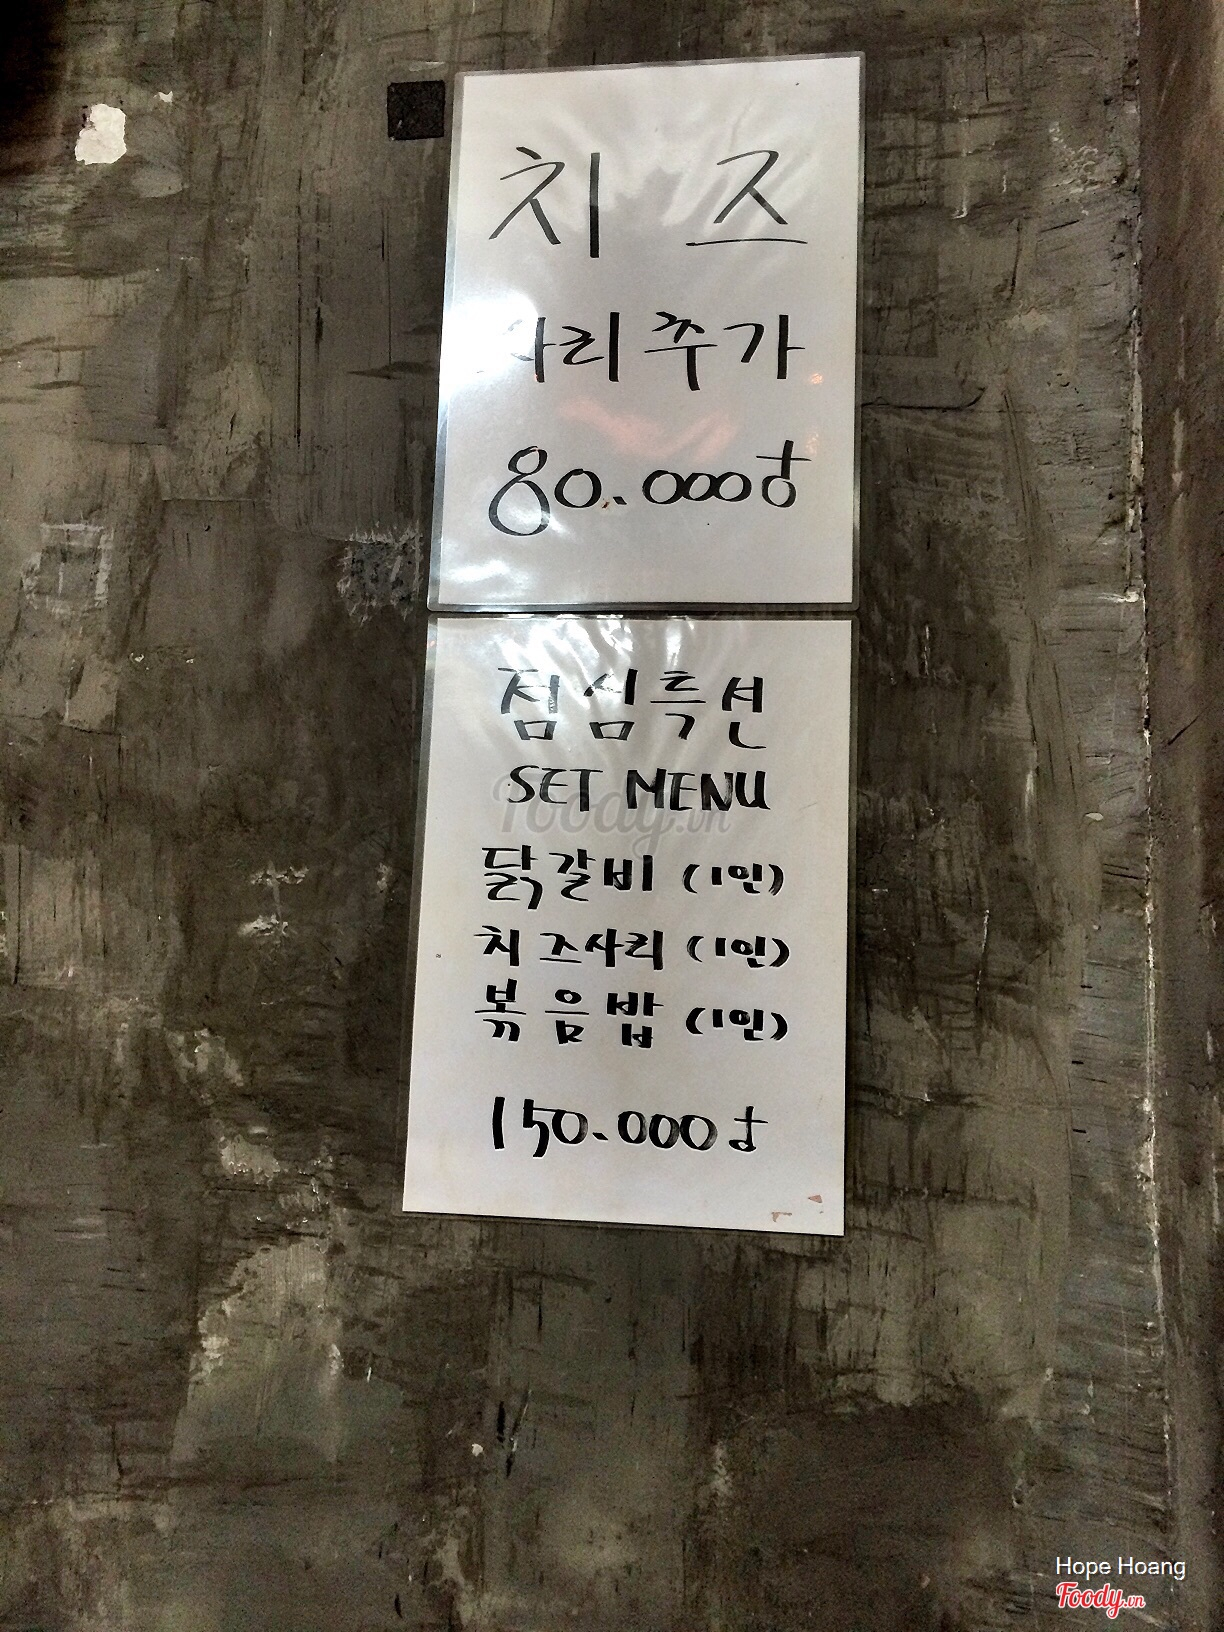 치즈
사리추가
80.000đ
점심특선
SET MENU
닭갈비 (1인)
치즈사리 (1인)
볶음밥 (1인)
150.000đ
Foody.vn
Hope Hoang
Foody.vn